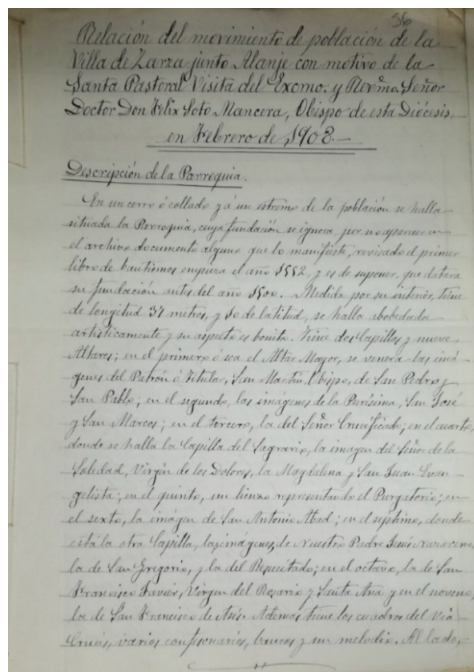 36
Relación del movimiento de población de la
Villa de Zarza junto Alanje con motivo de la
Santa Pastoral Visita del Excmo. y Rvmo. Señor
Doctor Don Felix Soto Mancera, Obispo de esta Diócesis,
en Febrero de 1908.—
Descripción de la Parroquia.
En un cerro ó collado y á un estremo de la población se halla
situada la Parroquia, cuya fundación se ignora por no aparecer en
el archivo documento alguno que lo manifieste; revisado el primer
libro de bautismos empieza el año 1552, y es de suponer, que datara
su fundación antes del año 1500. Medida por su interior, tiene
de longitud 37 metros, y 10 de latitud, se halla abobedada
artísticamente y su aspecto es bonito. Tiene dos Capillas y nueve
Altares; en el primero ó sea el Altar Mayor, se venera las imá-
genes del Patrón ó Titular, San Martín Obispo, de San Pedro y
San Pablo; en el segundo, las imágenes de la Purísima, San José
y San Marcos; en el tercero, la del Señor Crucificado; en el cuarto,
donde se halla la Capilla del Sagrario, la imagen del Señor de la
Soledad, Virgen de los Dolores, la Magdalena y San Juan Evan-
gelista; en el quinto, un lienzo representando el Purgatorio; en
el sexto, la imágen de San Antonio Abad; en el séptimo, donde
está la otra Capilla, las imágenes de Nuestro Padre Jesús Nazareno,
la de San Gregorio, y la del Resucitado; en el octavo, la de San
Francisco Javier, Virgen del Rosario y Santa Ana y en el noveno
la de San Francisco de Asis. Ademas tiene los cuadros del Via
Crucis, varios confesonarios, bancos y un melodix. Al lado,